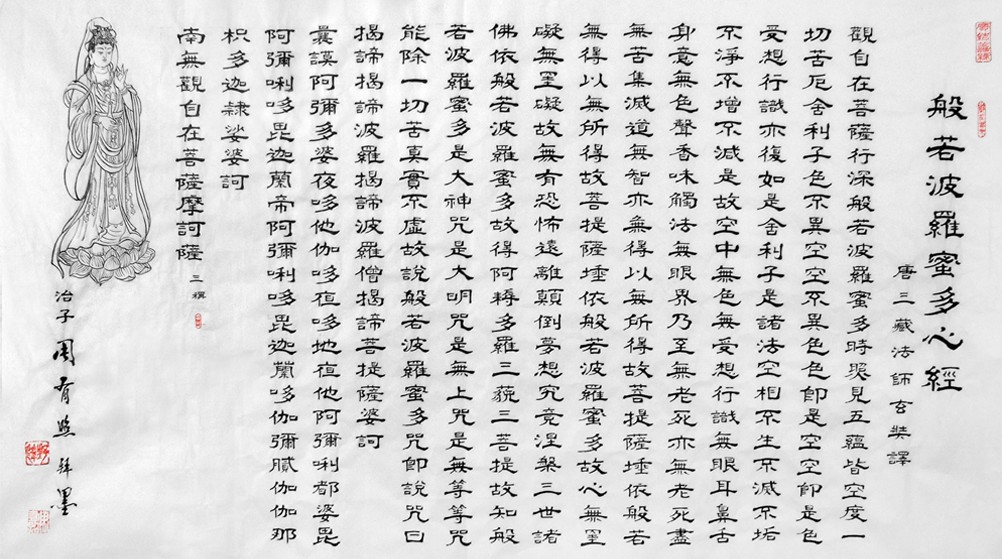 般若波羅蜜多心經
唐三藏法師玄奘譯
觀自在菩薩行深般若波羅蜜多時照見五蘊皆空度一
切苦厄舍利子色不異空空不異色色即是空空即是色
受想行識亦復如是舍利子是諸法空相不生不滅不垢
不淨不增不減是故空中無色無受想行識無眼耳鼻舌
身意無色聲香味觸法無眼界乃至無老死亦無老死盡
無苦集滅道無智亦無得以無所得故菩提薩埵依般若
無得以無所得故菩提薩埵依般若波羅蜜多故心無罣
礙無罣礙故無有恐怖遠離顛倒夢想究竟涅槃三世諸
佛依般若波羅蜜多故得阿耨多羅三藐三菩提故知般
若波羅蜜多是大神咒是大明咒是無上咒是無等等咒
能除一切苦真實不虛故說般若波羅蜜多咒即說咒曰
揭諦揭諦波羅揭諦波羅僧揭諦菩提薩婆訶
曩謨阿彌多婆夜哆他伽哆夜哆地夜他阿彌唎都婆毘
阿彌唎哆毘迦蘭帝阿彌唎哆毘迦蘭哆伽彌膩伽伽那
枳多迦隸娑婆訶
南無觀自在菩薩摩訶薩 三稱
冶子 周有 拜墨